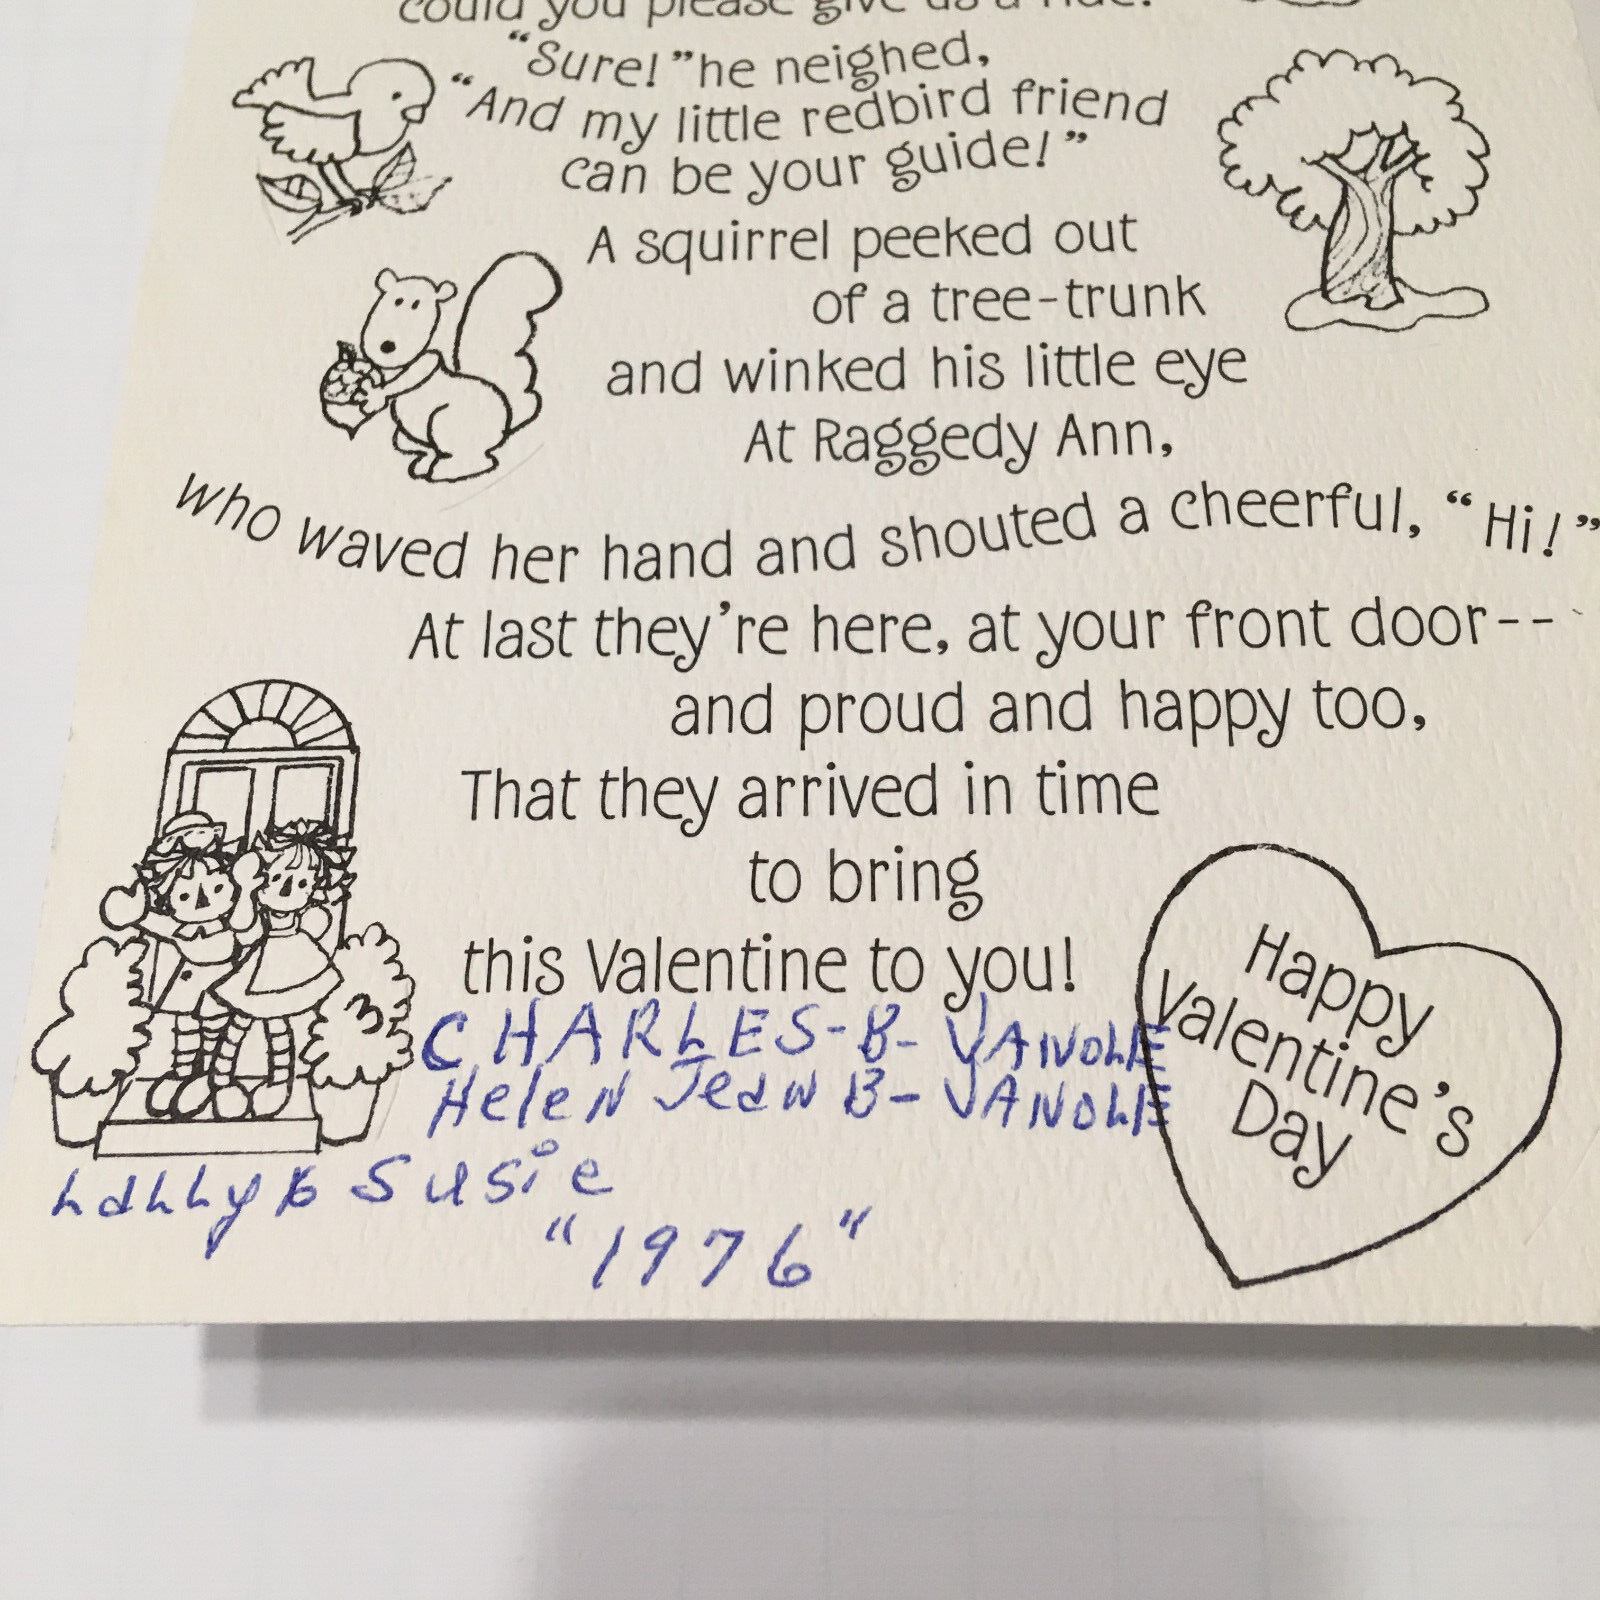 could you please give us a ride?"
"Sure!" he neighed,
"And my little redbird friend
can be your guide!"
A squirrel peeked out
of a tree-trunk
and winked his little eye
At Raggedy Ann,
who waved her hand and shouted a cheerful, "Hi!"
At last they're here, at your front door--
and proud and happy too,
That they arrived in time
to bring
this Valentine to you!
Happy
Valentine's
Day
CHARLES-B- VANOLE
Helen Jean B- VANOLE
& Susie
"1976"